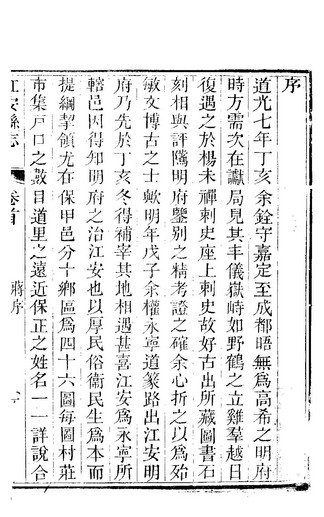 序
道光七年丁亥余銓守嘉定至成都晤無爲高希之明府
時方需次在讞局見其丰儀嶽峙如野鶴之立雞羣越日
復遇之於楊未禪刺史座上刺史故好古出所藏圖書石
刻相與評隲明府鑒别之精考證之確余心折之以爲殆
敏文博古之士歟明年戊子余權永寧道篆路出江安明
府乃先於丁亥冬得補宰其地相遇甚喜江安爲永寧所
轄邑因得知明府之治江安也以厚民俗衞民生爲本而
提綱挈領尤在保甲邑分十鄉區爲四十六圖每圖村莊
市集戸口之數目道里之遠近保正之姓名一一詳說合
江安縣志 卷首 蔣序